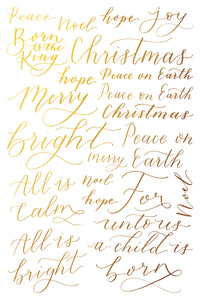 Peace Noel hope joy
Born is the King
Christmas
hope Peace on Earth
Merry Peace on Earth
Christmas
bright Peace on Earth
merry
All is Calm
noel
hope
For unto us a child is born
Noel
All is bright